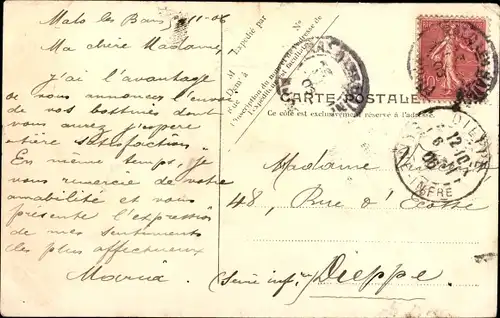 Malo les Bains 11-06
Ma chère Madame,
J'ai l'avantage
de vous annoncer l'envoi
de vos bottines dont
vous aurez j'espère
entière satisfaction.
En même temps, je
vous remercie de votre
amabilité et vous
présente l'expression
de mes sentiments
les plus affectueux
Maria
Expédié par
M
Dem^t à
Rue
N°
CARTE POSTALE
Ce côté est exclusivement réservé à l'adresse.
Madame
48, Rue d'Ecosse
(Seine inf^re)
Dieppe
DIEPPE
12
6
06
INFRE
10